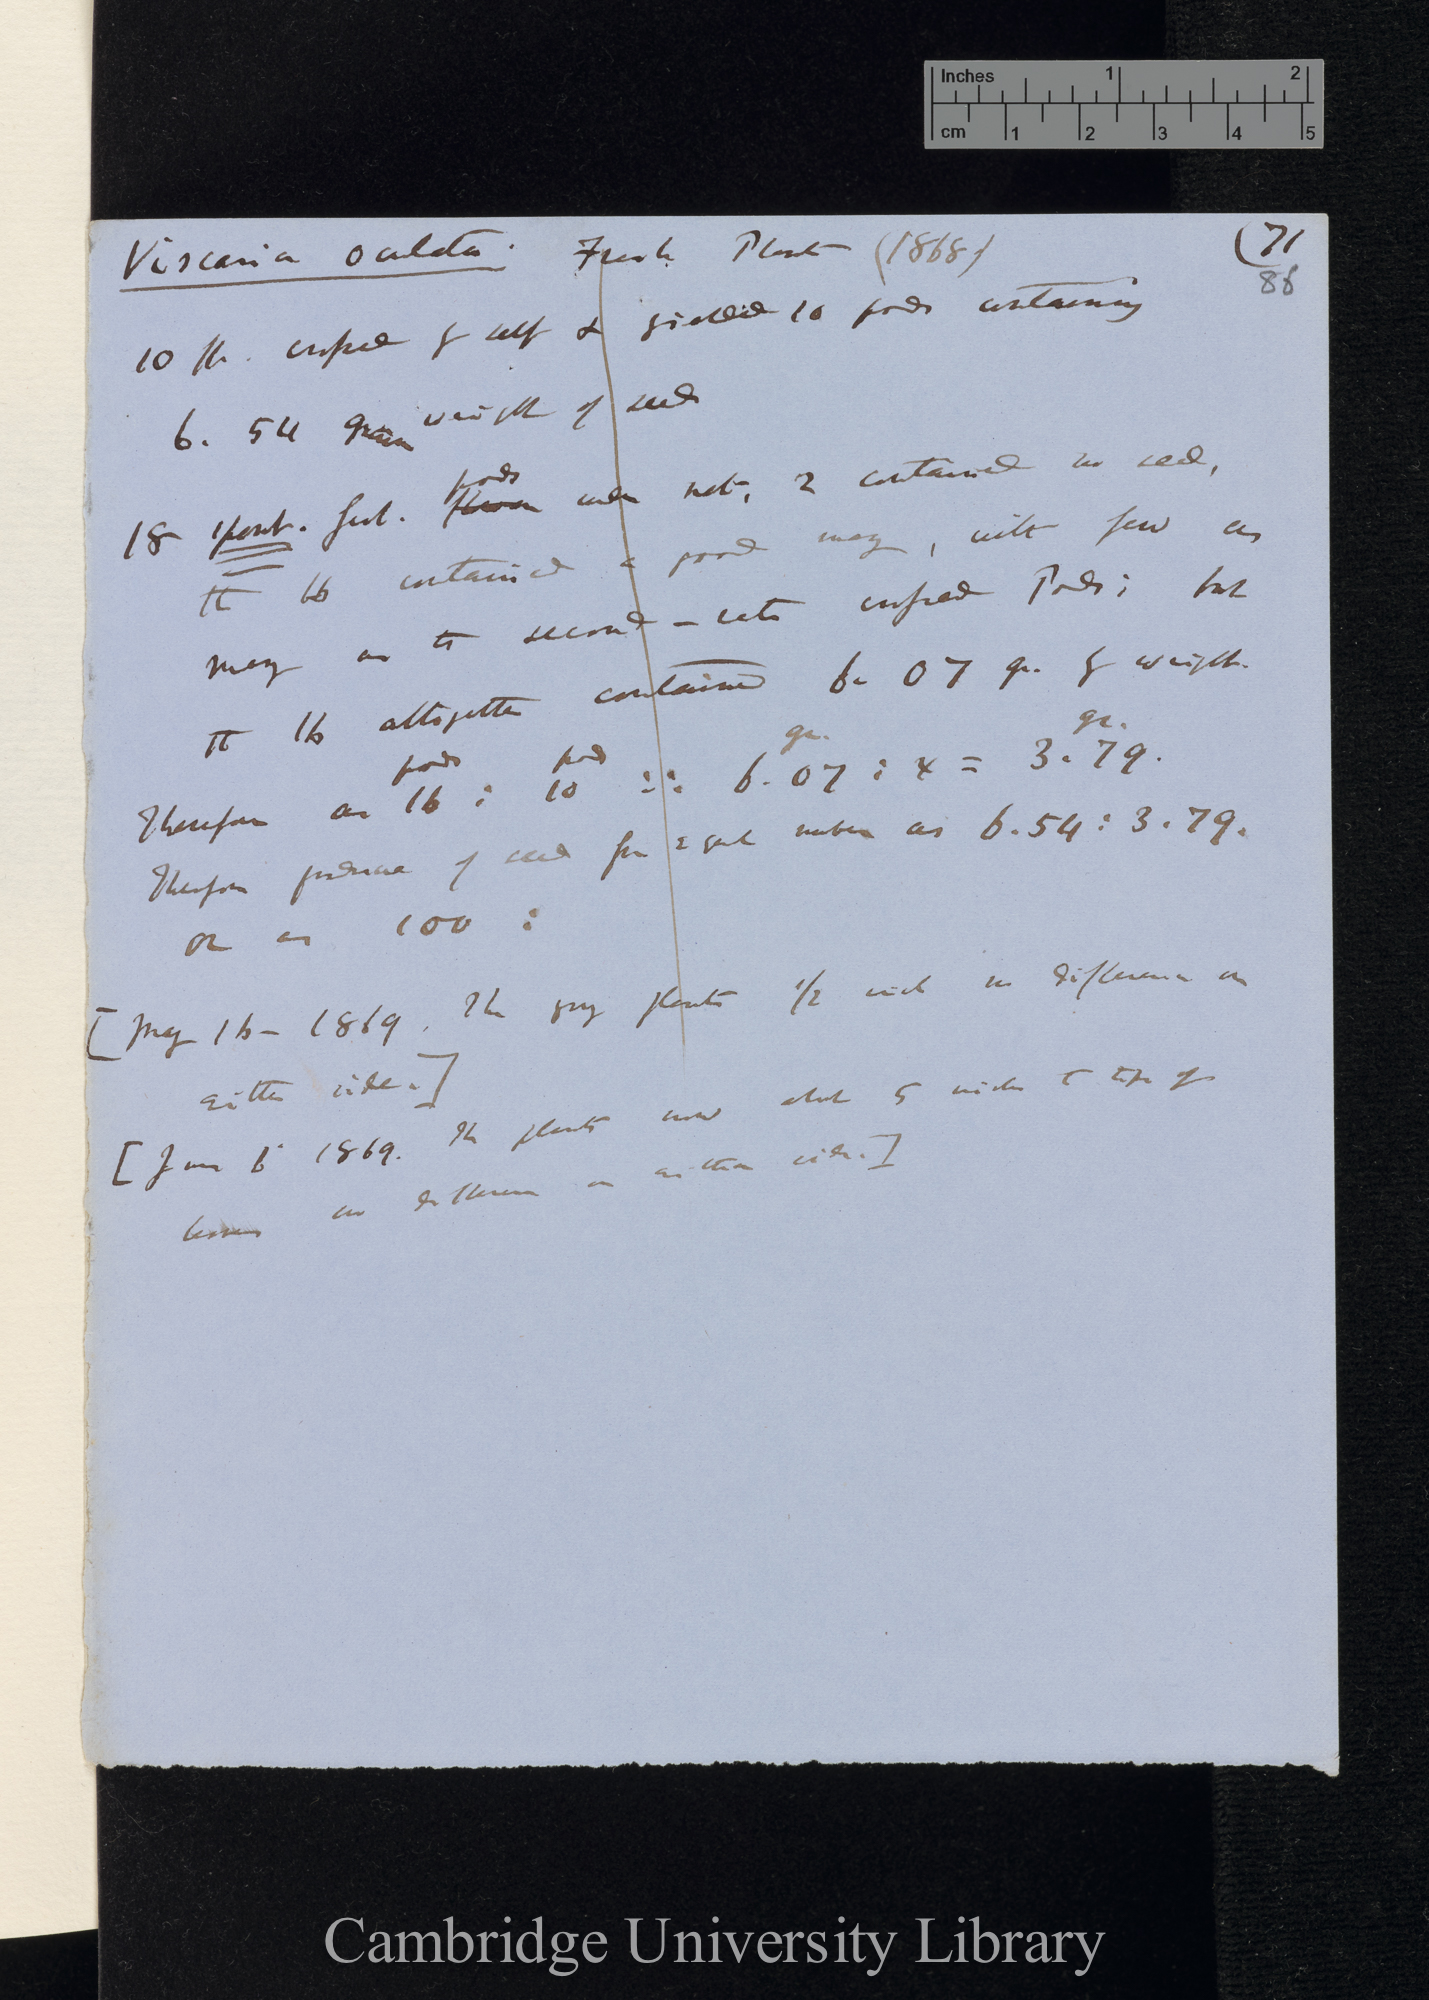 Inches 1 2
cm 1 2 3 4 5
Viscaria oculata. Fresh Plant (1868) (71
86
10 fl. crossed by self & yielded 10 pods containing
6.54 grain weight of seed
pods
18 spont. fert. flowers under net, 2 contained no seed,
the 16 contained a good many, with few as
many as the second-rate crossed Pods; but
the 16 altogether contained 6.07 gr. of weight.
pods pods gr. gr.
Therefore as 16 : 10 :: 6.07 : x = 3.79.
Therefore produce of seed for equal number as 6.54 : 3.79.
or as 100 :
[May 16 - 1869. The young plants 1/2 inch no difference on
either side.]
[June 6 1869. The plants now about 5 inches to tips of
leaves no difference on either side.]
Cambridge University Library